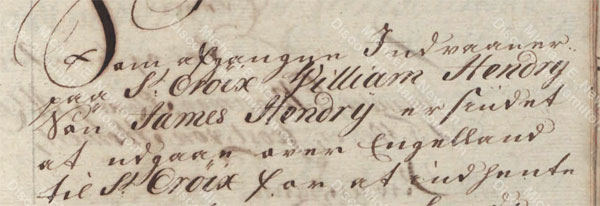 Som afgangne Indvaaner
paa St Croix William Hendry
Søn James Hendry er sindet
at udgaae over Engelland
til St Croix for at indhente